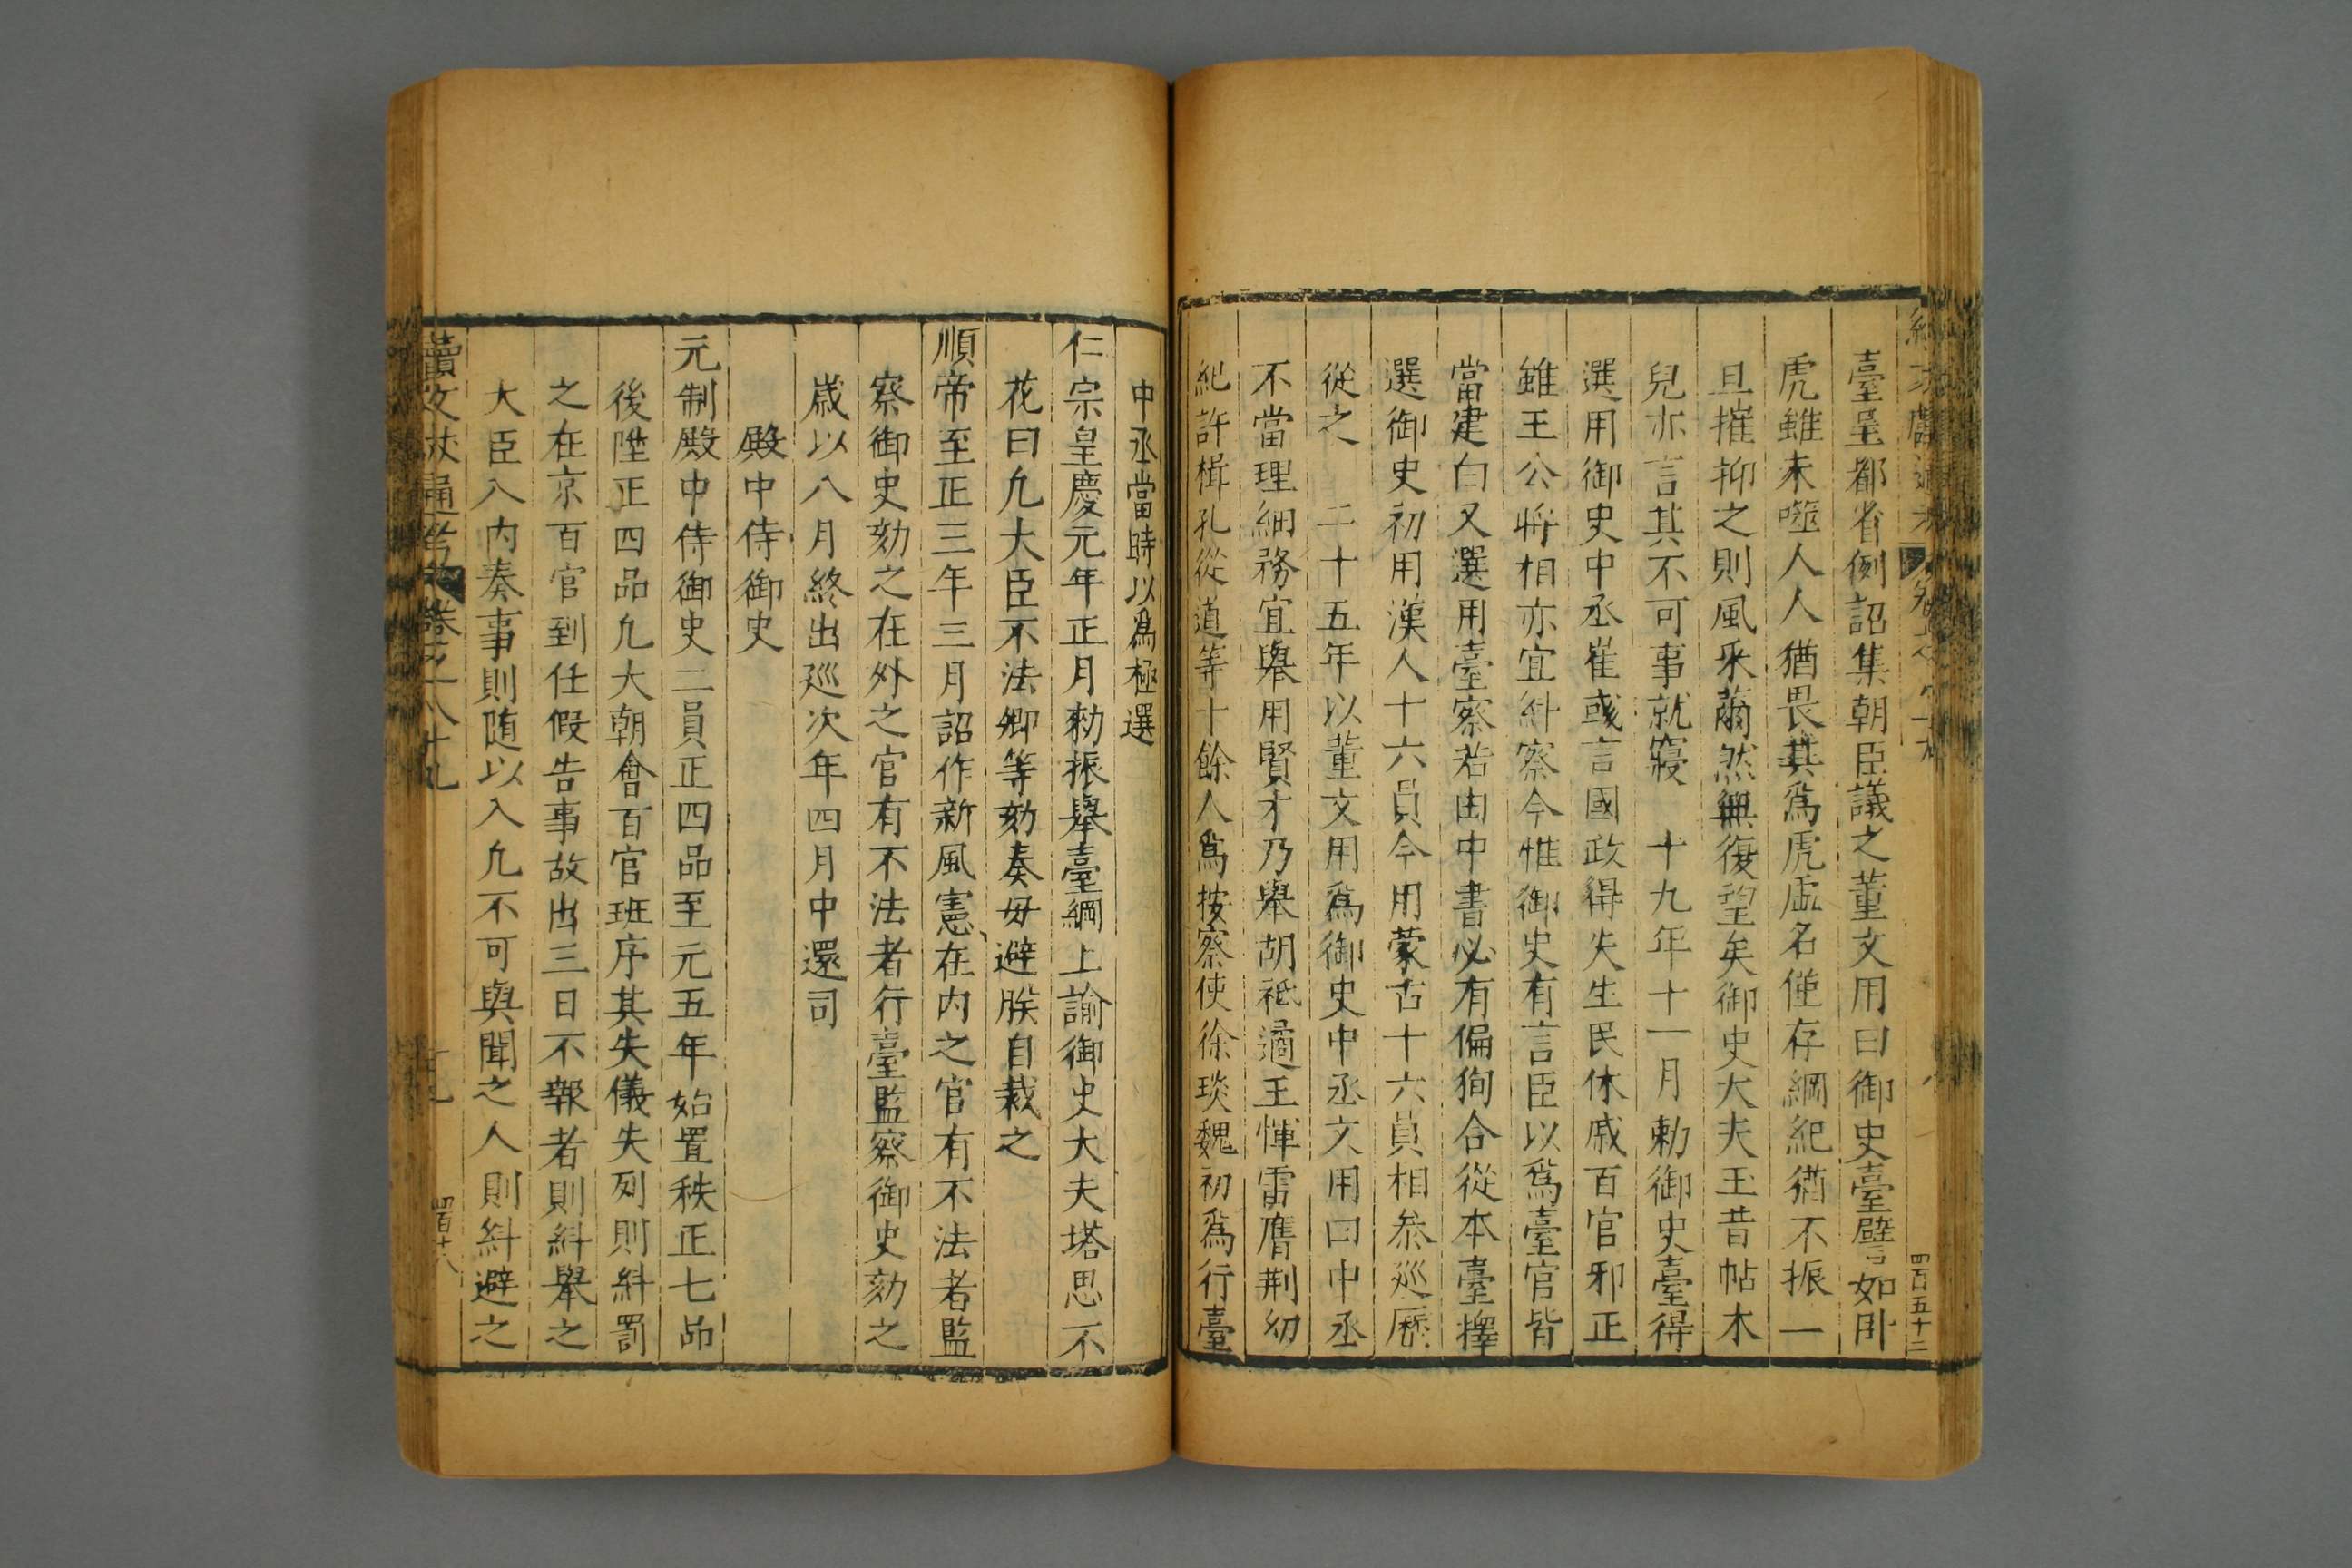 臺呈都省例詔集朝臣議之董文用曰御史臺譬如卧
虎雖未噬人人猶畏其爲虎虛名僅存綱紀猶不振一
旦摧抑之則風采薾然無復望矣御史大夫玉昔帖木
兒亦言其不可事就寢 十九年十一月勅御史臺得
選用御史中丞崔彧言國政得失生民休戚百官邪正
雖王公將相亦宜糾察今惟御史有言臣以爲臺官皆
當建白又選用臺察若由中書必有偏狥合從本臺擇
選御史初用漢人十六員今用蒙古十六員相叅巡歷
從之 二十五年以董文用爲御史中丞文用曰中丞
不當理細務宜舉用賢才乃舉胡祗遹王惲雷膺荆幼
紀許楫孔從道等十餘人爲按察使徐琰魏初爲行臺
四百五十二
中丞當時以爲極選
仁宗皇慶元年正月勑振舉臺綱上諭御史大夫塔思不
花曰凢大臣不法卿等劾奏毋避朕自裁之
順帝至正三年三月詔作新風憲在内之官有不法者監
察御史劾之在外之官有不法者行臺監察御史劾之
歳以八月終出廵次年四月中還司
殿中侍御史
元制殿中侍御史二員正四品至元五年始置秩正七品
後陞正四品凢大朝會百官班序其失儀失列則糾罰
之在京百官到任假告事故出三日不報者則糾舉之
大臣入内奏事則随以入凢不可與聞之人則糾避之
續文献通考 卷之八十九